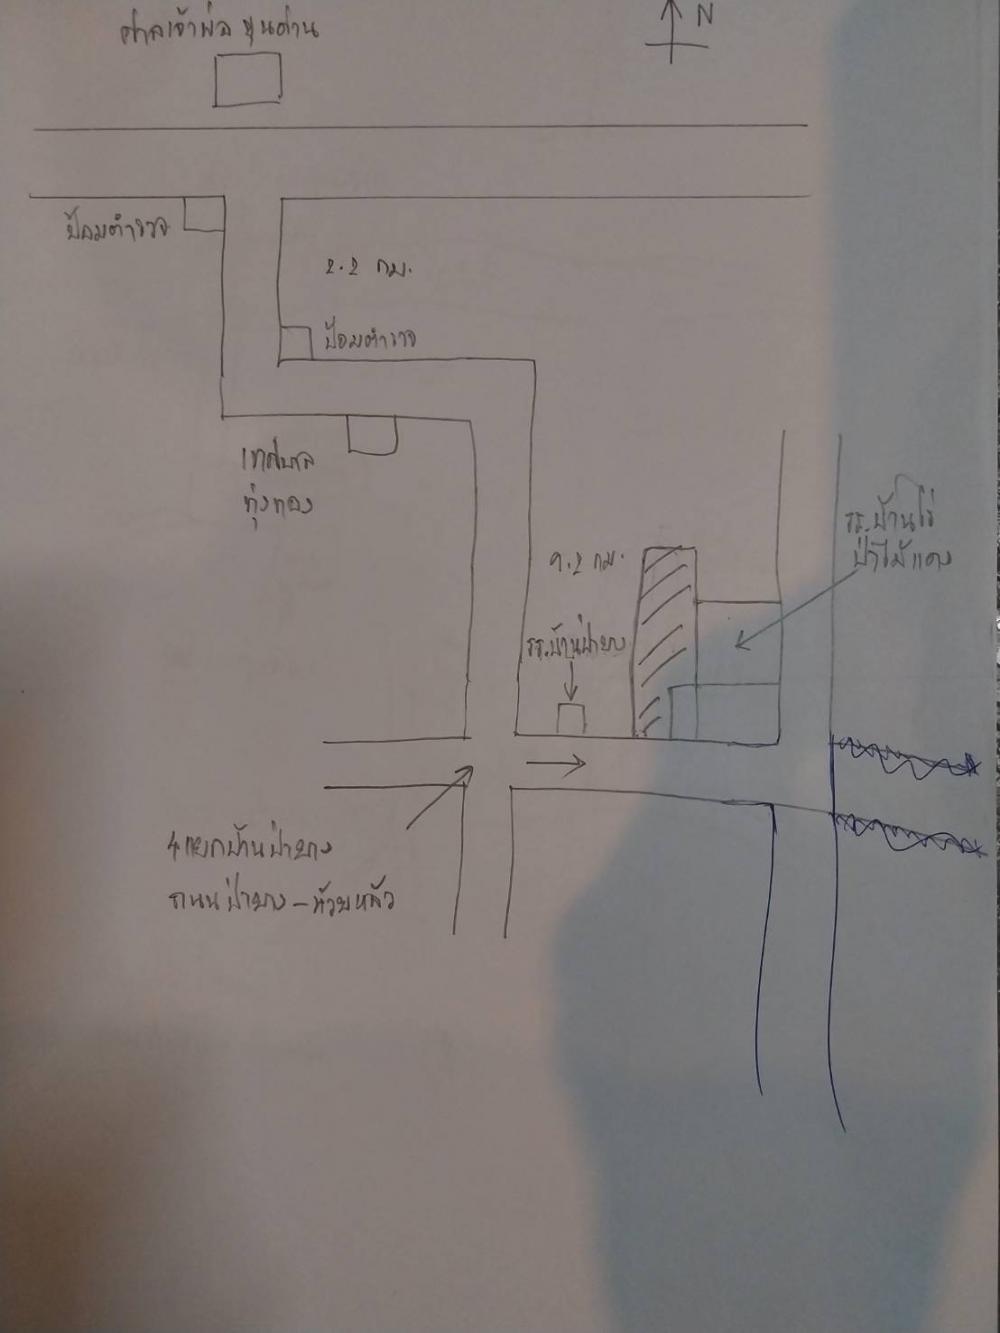 ศาลเจ้าพ่อ ขุนด่าน
N
ป้อมตำรวจ
2.2 กม.
ป้อมตำรวจ
เทศบาล
ทุ่งทอง
รร.บ้านไร่
ป่าไม้แดง
9.2 กม.
รร.บ้านป่ายาง
4แยกบ้านป่ายาง
ถนนป่ายาง-ห้วยหลัว